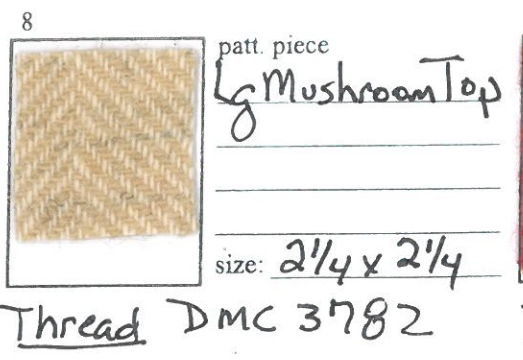 8
patt. piece
Lg Mushroom Top
size: 2 1/4 x 2 1/4
Thread DMC 3782